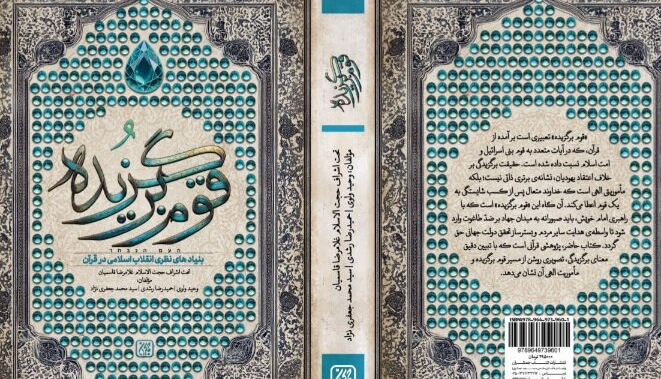 قوم برگزیده
העם הנבחר
بنیادهای نظری انقلاب اسلامی در قرآن
تحت اشراف حجت الاسلام غلامرضا قاسمیان
مؤلفان:
وحید ولوی | حمیدرضا رشدی | سید محمد جعفری نژاد
قوم برگزیده
تحت اشراف حجت الاسلام غلامرضا قاسمیان
مؤلفان: وحید ولوی | حمیدرضا رشدی | سید محمد جعفری نژاد
«قوم برگزیده» تعبیری است برآمده از
قرآن، که در آیات متعدد به قوم بنی اسرائیل و
امت اسلام نسبت داده شده است. حقیقت برگزیدگی بر
خلاف اعتقاد یهودیان، نشانه‌ی برتری ذاتی نیست؛ بلکه
مأموریتی الهی است که خداوند متعال پس از کسب شایستگی به
یک قوم اعطا می‌کند. آن گاه این «قوم برگزیده» است که با
راهبری امام خویش، باید صبورانه به میدان جهاد بر ضدّ طاغوت وارد
شود تا واسطه‌ی هدایت سایر مردم و بسترساز تحقق دولت جهانی حق
گردد. کتاب حاضر، پژوهشی قرآنی است که با تبیین دقیق
معنای برگزیدگی، تصویری روشن از مسیر قوم برگزیده و
مأموریت الهی آن نشان می‌دهد.
9789649739601